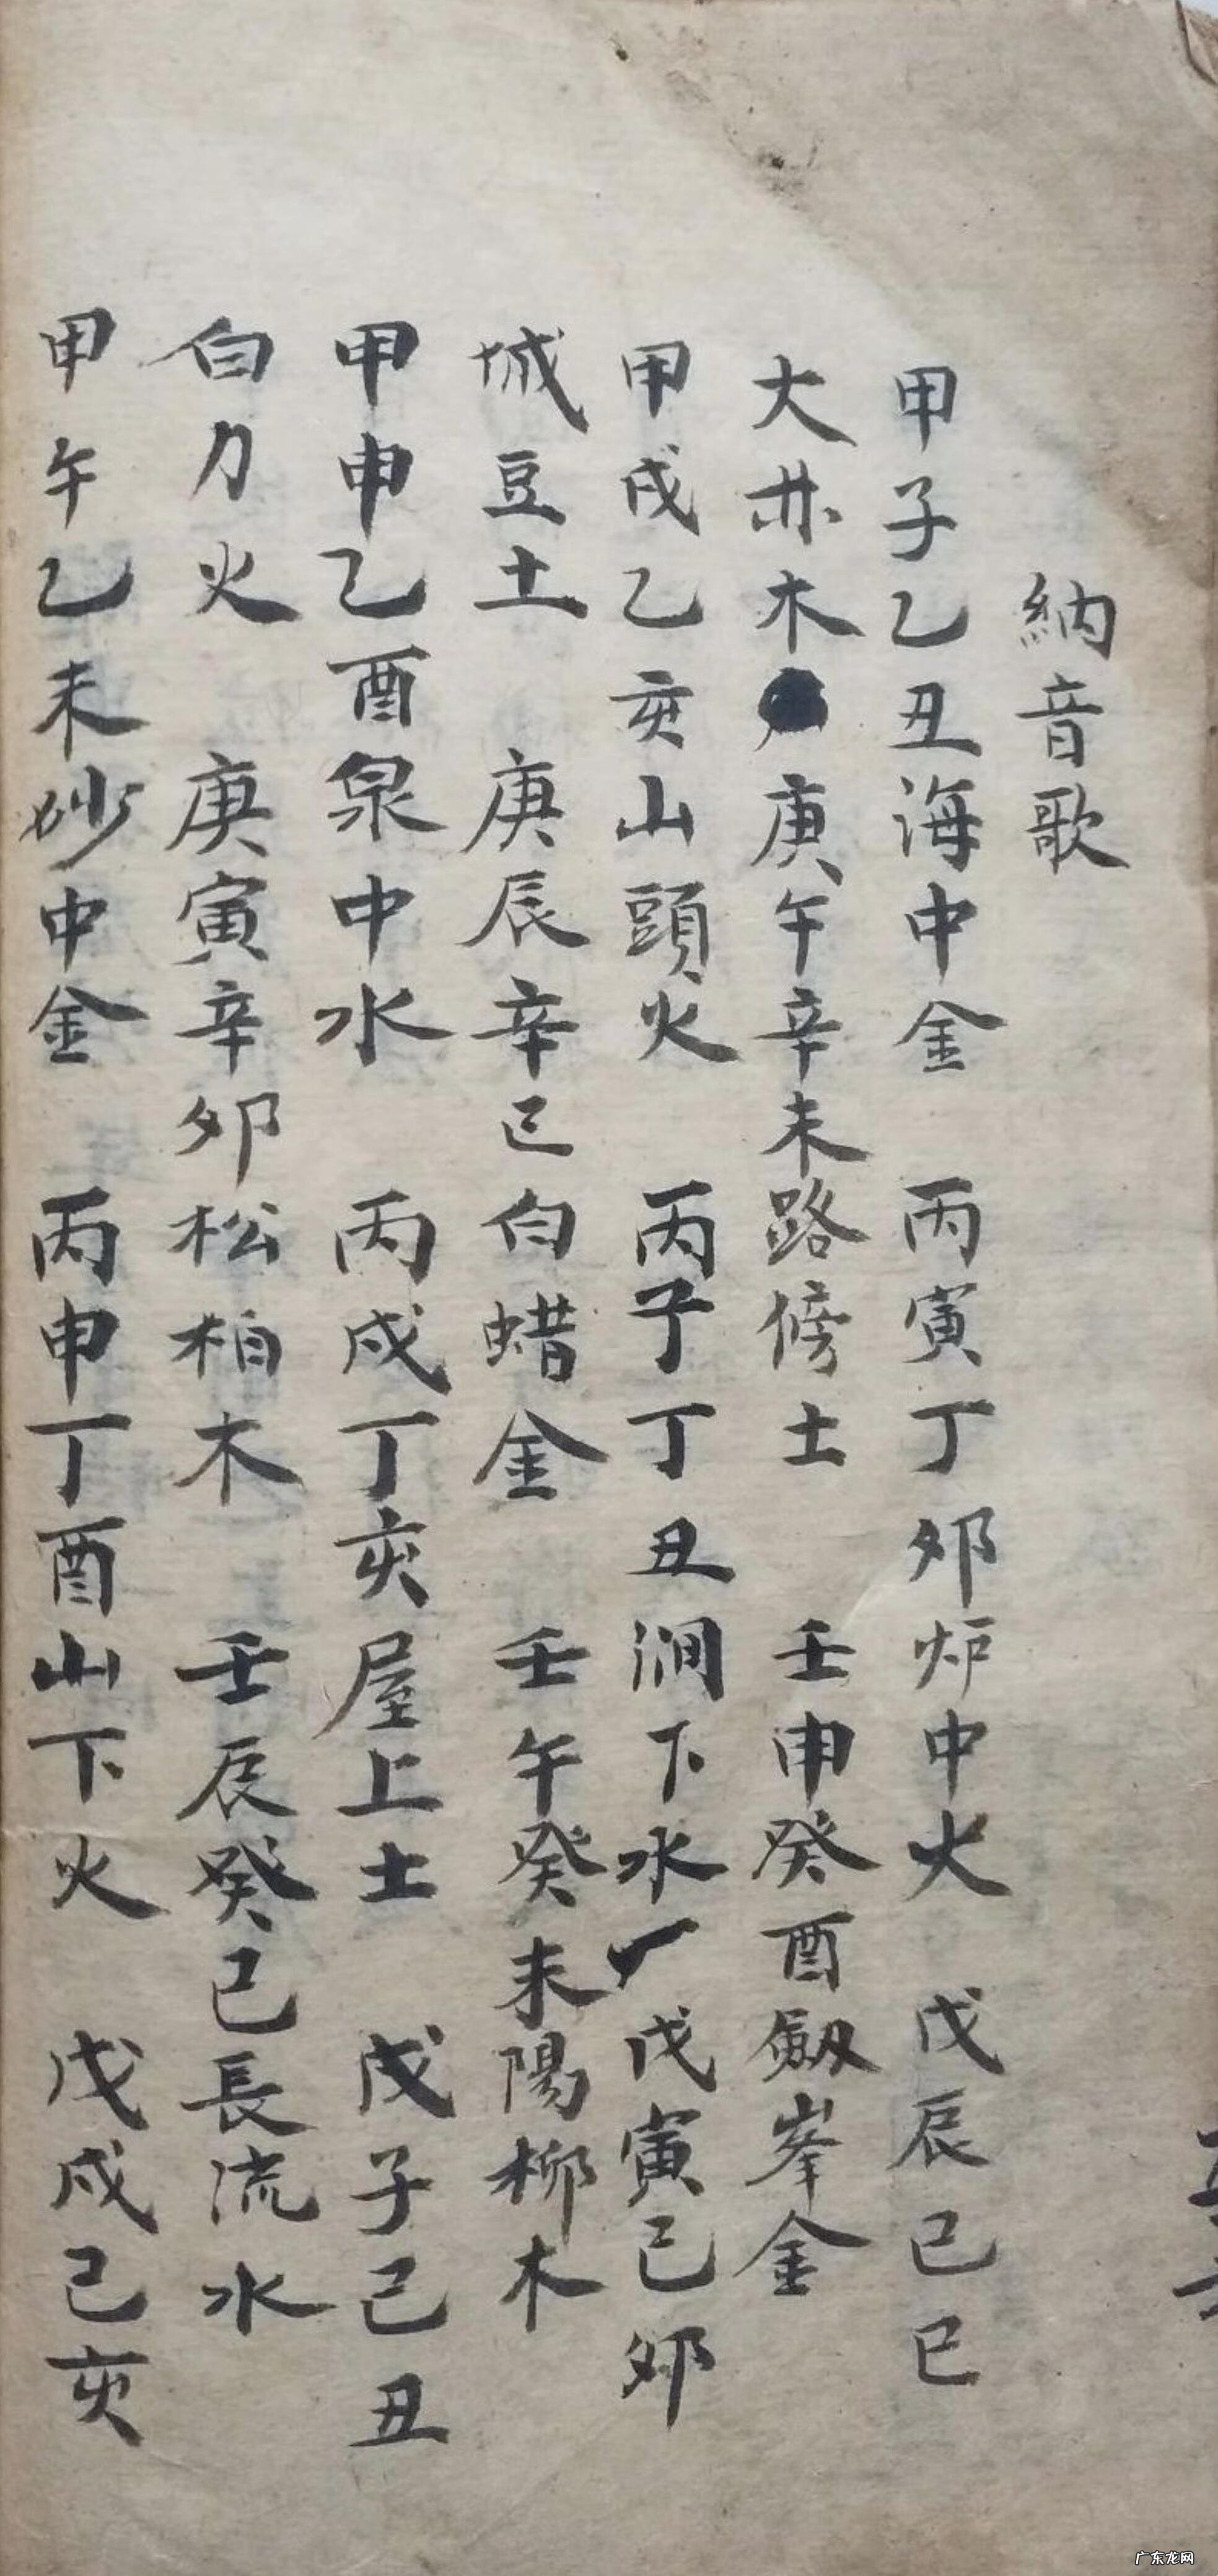 納音歌
甲子乙丑海中金 丙寅丁卯炉中火 戊辰己巳
大林木 庚午辛未路傍土 壬申癸酉劔峯金
甲戌乙亥山頭火 丙子丁丑澗下水 戊寅己卯
城豆土 庚辰辛巳白蜡金 壬午癸未陽柳木
甲申乙酉泉中水 丙戌丁亥屋上土 戊子己丑
白力火 庚寅辛卯松柏木 壬辰癸巳長流水
甲午乙未妙中金 丙申丁酉山下火 戊戌己亥
广东龙网